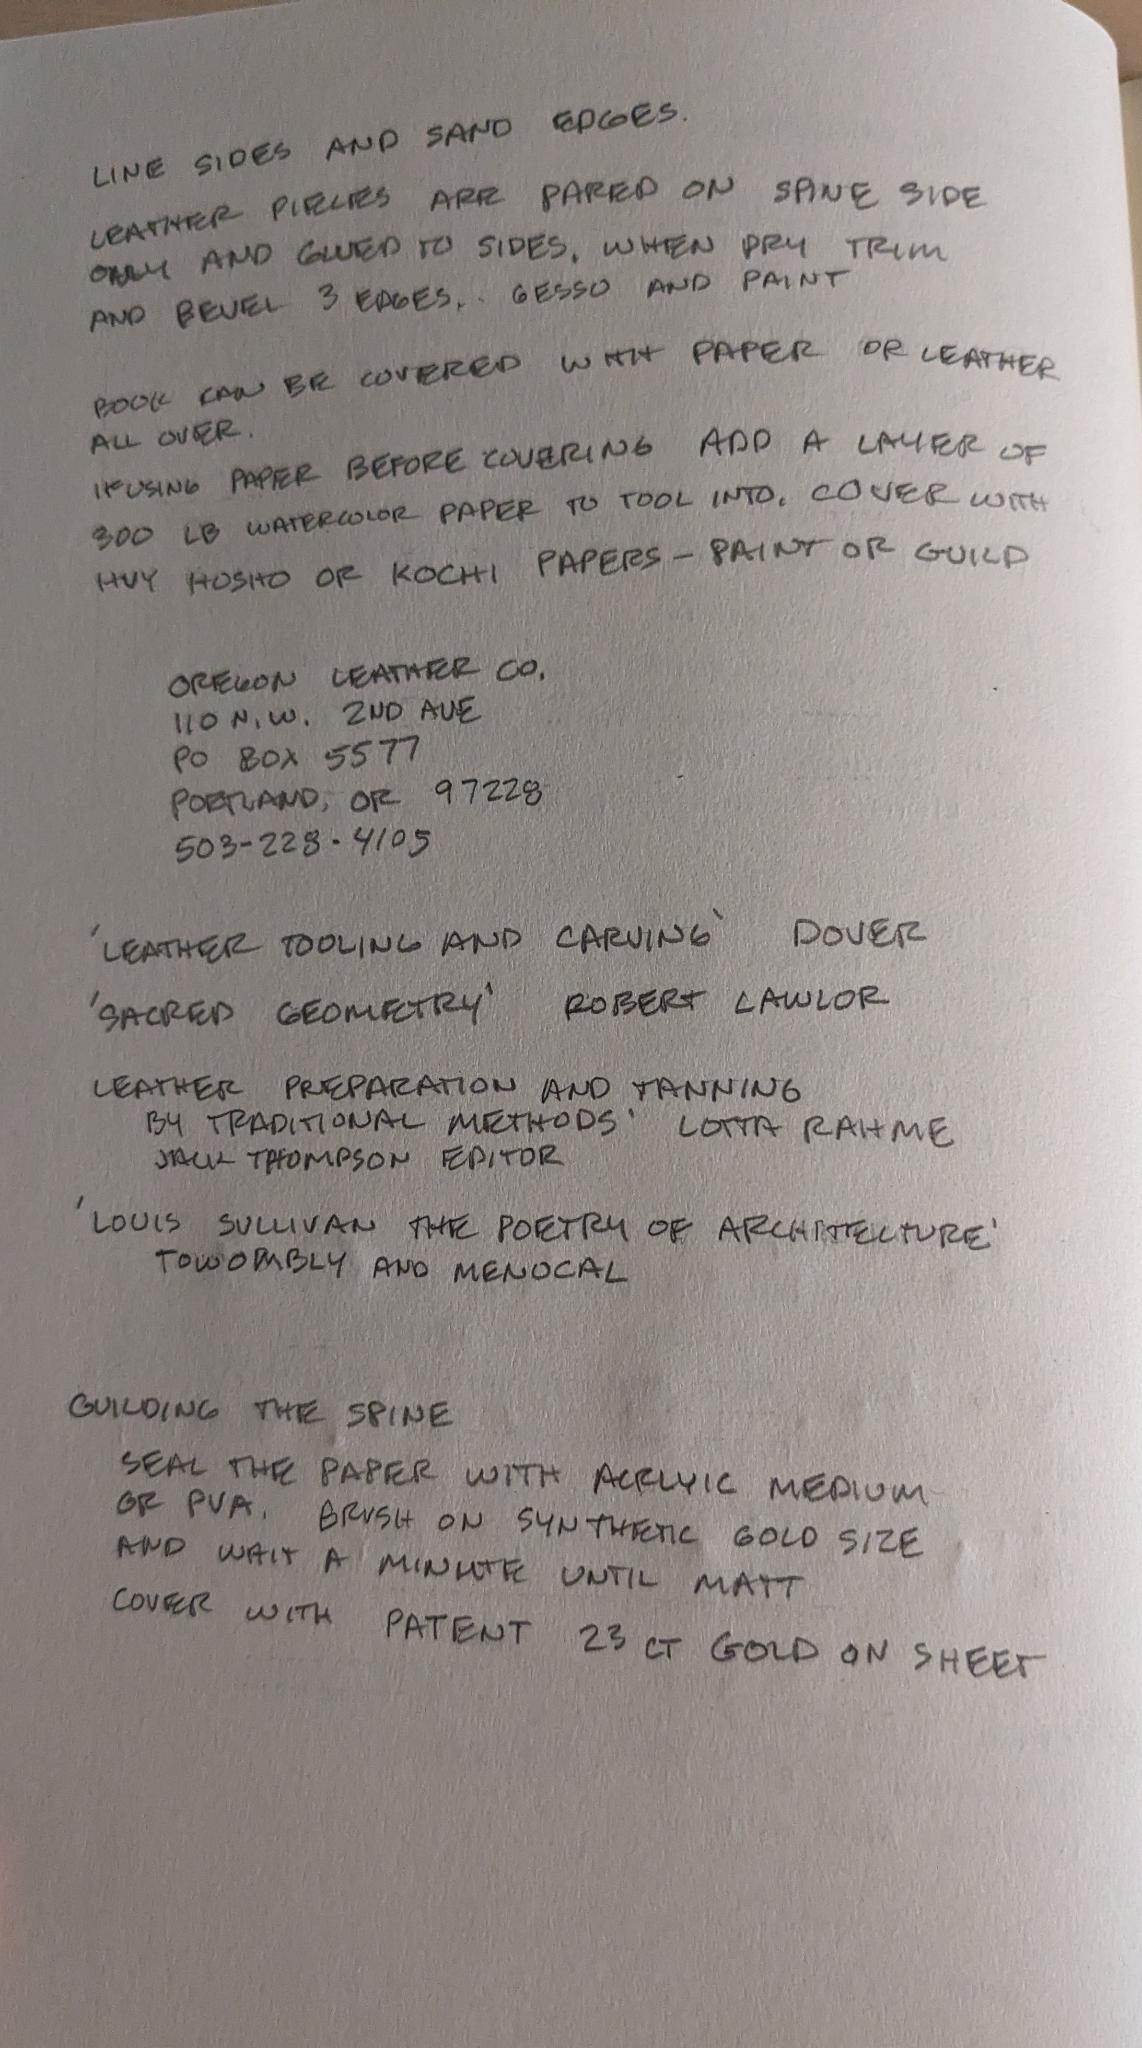 LINE SIDES AND SAND EDGES.
LEATHER PIECES ARE PARED ON SPINE SIDE
ONLY AND GLUED TO SIDES. WHEN DRY TRIM
AND BEVEL 3 EDGES.. GESSO AND PAINT
BOOK CAN BE COVERED WITH PAPER OR LEATHER
ALL OVER.
IF USING PAPER BEFORE COVERING ADD A LAYER OF
300 LB WATERCOLOR PAPER TO TOOL INTO. COVER WITH
HVY HOSHO OR KOCHI PAPERS - PAINT OR GUILD
OREGON LEATHER CO.
110 N.W. 2ND AVE
PO BOX 5577
PORTLAND, OR 97228
503-228-4105
'LEATHER TOOLING AND CARVING' DOVER
'SACRED GEOMETRY' ROBERT LAWLOR
LEATHER PREPARATION AND TANNING
BY TRADITIONAL METHODS' LOTTA RAHME
JACK THOMPSON EDITOR
'LOUIS SULLIVAN THE POETRY OF ARCHITECTURE'
TOWOMBLY AND MENOCAL
GUILDING THE SPINE
SEAL THE PAPER WITH ACRLYIC MEDIUM
OR PVA. BRUSH ON SYNTHETIC GOLD SIZE
AND WAIT A MINUTE UNTIL MATT
COVER WITH PATENT 23 CT GOLD ON SHEET